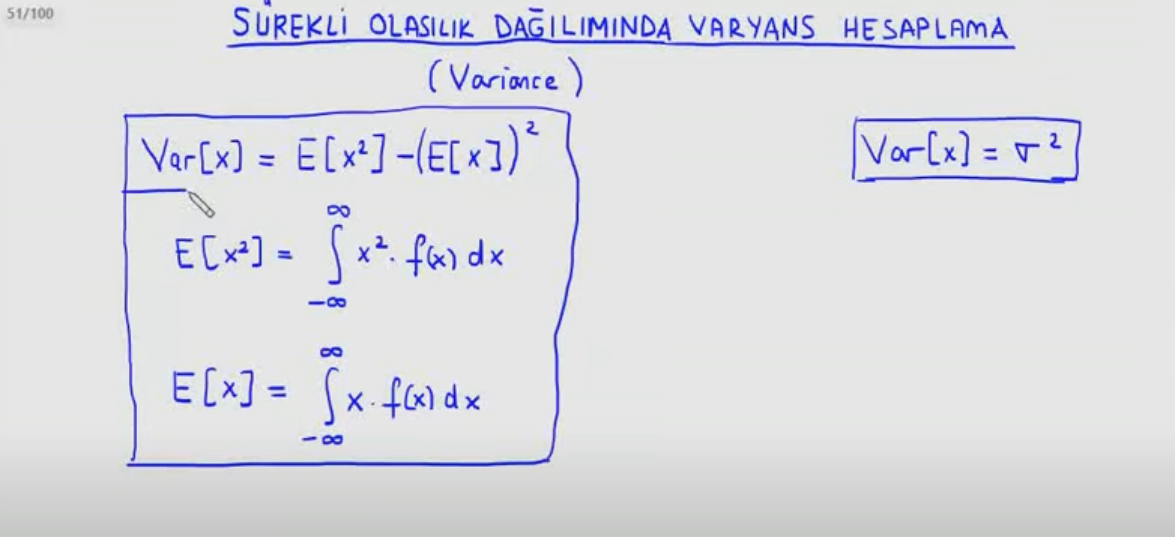 51/100
SÜREKLİ OLASILIK DAĞILIMINDA VARYANS HESAPLAMA
(Variance)
Var[x] = E[x²] - (E[x])²
Var[x] = σ²
E[x²] = ∫_{-∞}^{∞} x² · f(x) dx
E[x] = ∫_{-∞}^{∞} x · f(x) dx